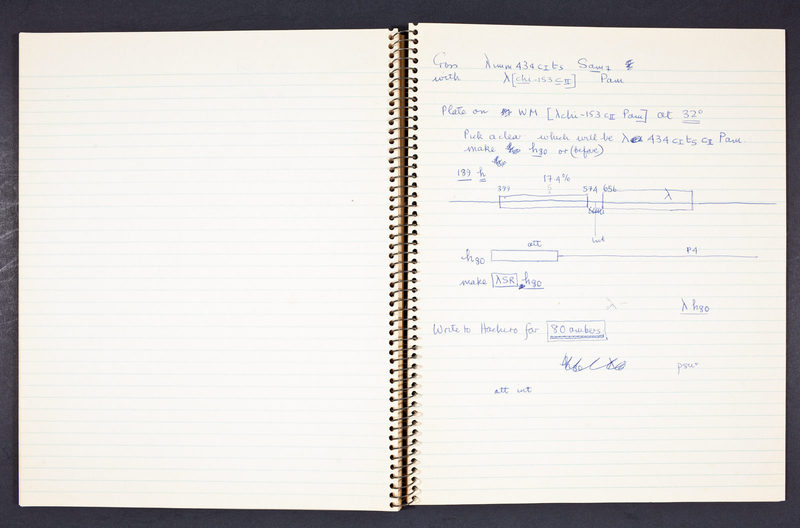 Cross λimm434 cI ts Sam7
with λ[chi-153 cII] Pam
Plate on WM [λchi-153 cII Pam] at 32°
Pick a clear which will be λ 434 cI ts cII Pam.
make h80 or (before)
189 h
17.4%
399 574 656
λ
int
att
h80 P4
make λSR h80
λ
λ h80
Write to Hachiro for 80 ambers.
att int